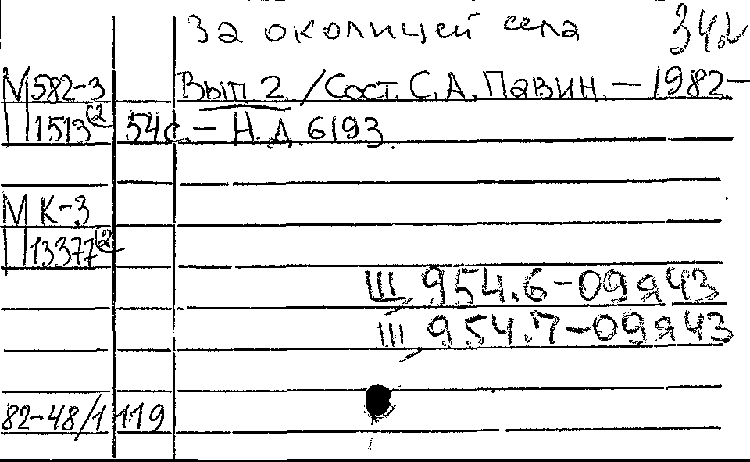 За околицей села 342
М 582-3 Вып 2 / Сост. С.А. Павин. — 1982—
П 1513② 54с. — Н.Д 6193.
М К-3
П 13377②
III 954.6-09я43
III 954.7-09я43
82-48/1 119